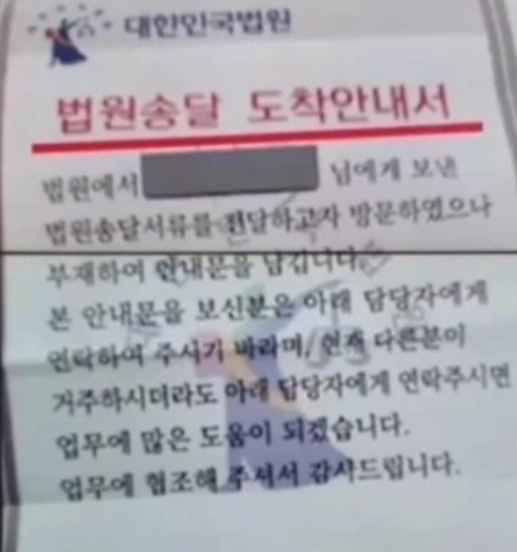 대한민국법원
법원송달 도착안내서
법원에서 님에게 보낸
법원송달서류를 전달하고자 방문하였으나
부재하여 안내문을 남깁니다.
본 안내문을 보신분은 아래 담당자에게
연락하여 주시기 바라며, 현재 다른분이
거주하시더라도 아래 담당자에게 연락주시면
업무에 많은 도움이 되겠습니다.
업무에 협조해 주셔서 감사드립니다.